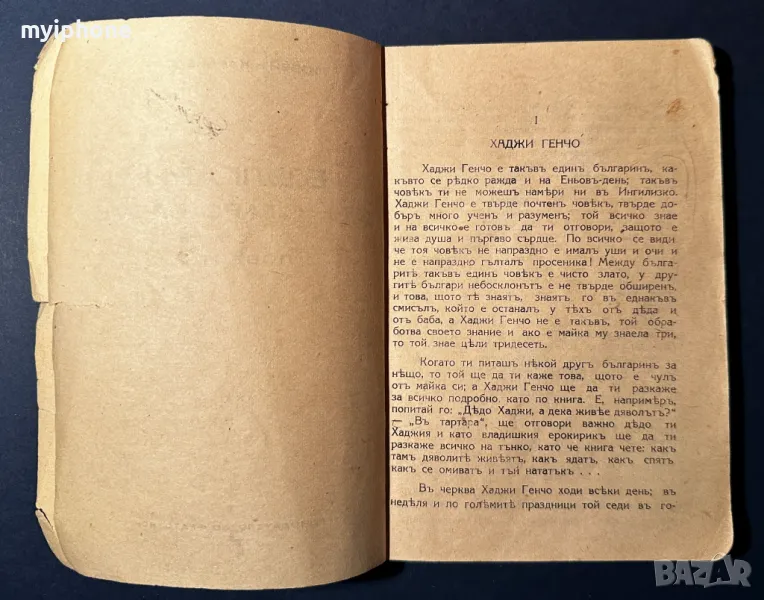 myiphone
I
ХАДЖИ ГЕНЧО
Хаджи Генчо е такъвъ единъ българинъ, ка-
къвто се рѣдко ражда и на Еньовъ-день; такъвъ
човѣкъ ти не можешъ намѣри ни въ Ингилизко.
Хаджи Генчо е твърде почтенъ човѣкъ, твърде до-
бъръ много ученъ и разуменъ; той всичко знае
и на всичкое готовъ да ти отговори, защото е
жива душа и пъргаво сърдце. По всичко се види
че тоя човѣкъ не напраздно е ималъ уши и очи и
не е напраздно гълталъ просеника! Между бълга-
ритѣ такъвъ единъ човѣкъ е чисто злато, у дру-
гитѣ българи небосклонътъ е не твърде обширенъ,
и това, щото тѣ знаятъ, знаятъ го въ еднакъвъ
смисълъ, който е останалъ у тѣхъ отъ дѣда и
отъ баба, а Хаджи Генчо не е такъвъ, той обра-
ботва своето знание и ако е майка му знаела три,
то той знае цѣли тридесеть.
Когато ти питашъ нѣкой другъ българинъ за
нѣщо, то той ще да ти каже това, щото е чулъ
отъ майка си; а Хаджи Генчо ще да ти разкаже
за всичко подробно, като по книга. Е, напримѣръ,
попитай го: „Дѣдо Хаджи, а дека живѣе дяволътъ?"
— „Въ тартара", ще отговори важно дѣдо ти
Хаджия и като владишкия ерокирикъ ще да ти
разкаже всичко на тънко, като че книга чете: какъ
тамъ дяволитѣ живѣятъ, какъ ядатъ, какъ спятъ
какъ се омиватъ и тъй нататъкъ . . .
Въ черква Хаджи Генчо ходи всѣки день; въ
недѣля и по голѣмитѣ праздници той седи въ го-
BAZAR
bg